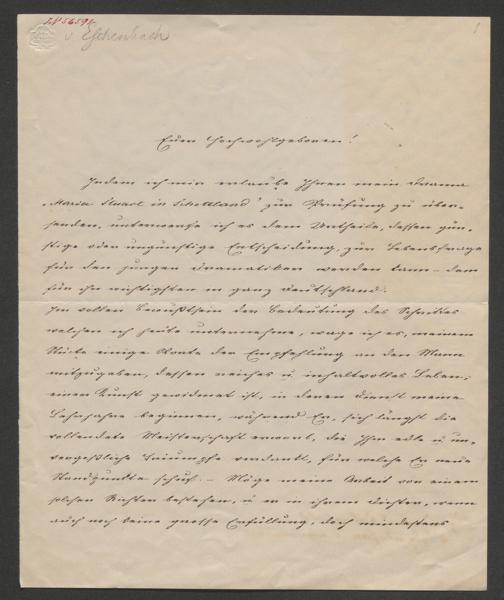 I.N 56598
v. Eschenbach
1
Euer Hochwohlgeboren!
Indem ich mir erlaube Ihnen mein Drama
„Maria Stuart in Schottland" zur Prüfung zu über-
senden, unterwerfe ich es dem Urtheile, dessen gün-
stige oder ungünstige Entscheidung, zur Lebensfrage
für den jungen Dramatiker werden kann – dem
für ihn wichtigsten in ganz Deutschland.
Im vollen Bewußtsein der Bedeutung des Schrittes
welchen ich heute unternehme, wage ich es, meinem
Stücke einige Worte der Empfehlung an den Mann
mitzugeben, dessen reiches u inhaltvolles Leben,
einer Kunst gewidmet ist, in deren Dienst meine
Lehrjahre beginnen, während Er, sich längst die
vollendete Meisterschaft erwarb, die Ihm edle u un-
vergeßliche Triumpfe verdankt, für welche Er neue
Standpunkte schuf. – Möge meine Arbeit vor einem
solchen Richter bestehen, u er in ihrem Dichter, wenn
auch noch keine grosse Erfüllung, doch mindestens